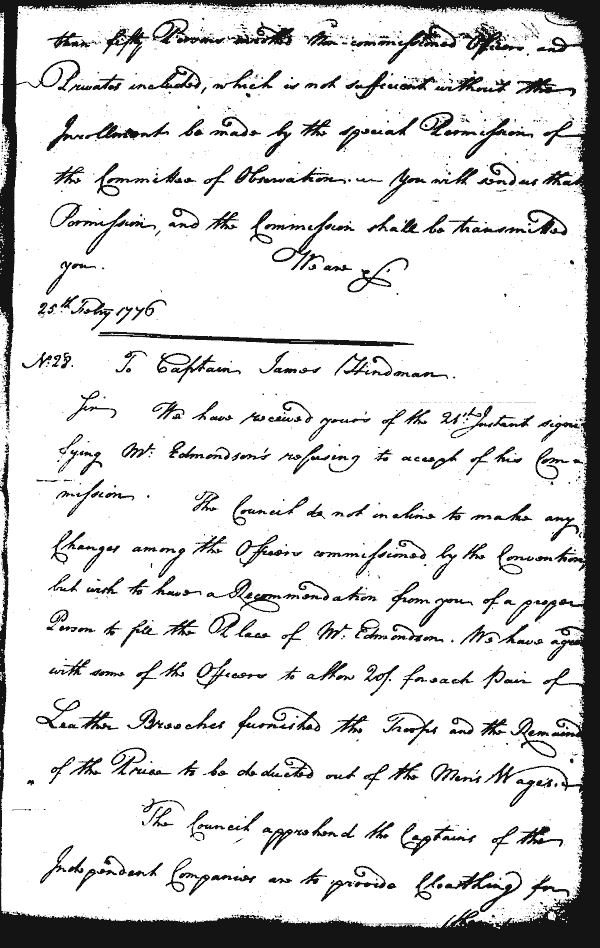 than fifty Persons enrolled Non-commissioned Officers, and
Privates included, which is not sufficient without the
Inrollment be made by the special Permission of
the Committee of Observation. You will send us that
Permission, and the Commission shall be transmitted
you. We are &c.
25th Feby 1776
No. 28. To Captain James Hindman.
Sir We have received yours of the 21st Instant signi
fying Mr. Edmondson's refusing to accept of his Com
mission. The Council do not incline to make any
Changes among the Officers commissioned by the Convention,
but wish to have a Recommendation from you of a proper
Person to fill the Place of Mr. Edmondson. We have agreed
with some of the Officers to allow 20/. for each Pair of
Leather Breeches furnished the Troops and the Remaind
of the Price to be deducted out of the Men's Wages.
The Council apprehend the Captains of the
Independent Companies are to provide Cloathing for